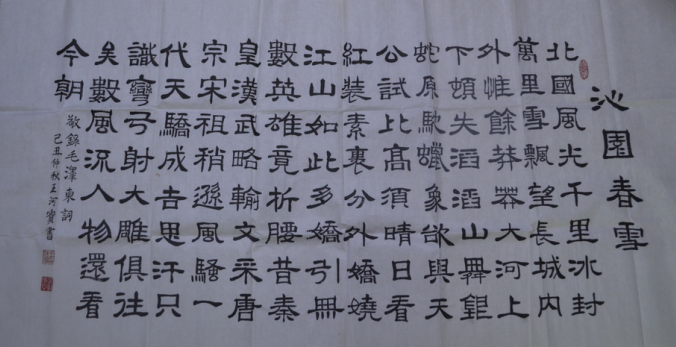 沁園春雪
北國風光千里冰封
萬里雪飄望長城內
外惟餘莽莽大河上
下頓失滔滔山舞銀
蛇原馳蠟象欲與天
公試比高須晴日看
紅裝素裹分外嬌嬈
江山如此多嬌引無
數英雄竟折腰昔秦
皇漢武略輸文采唐
宗宋祖稍遜風騷一
代天驕成吉思汗只
識彎弓射大雕俱往
矣數風流人物還看
今朝
敬錄毛澤東詞
己丑仲秋王河寶書